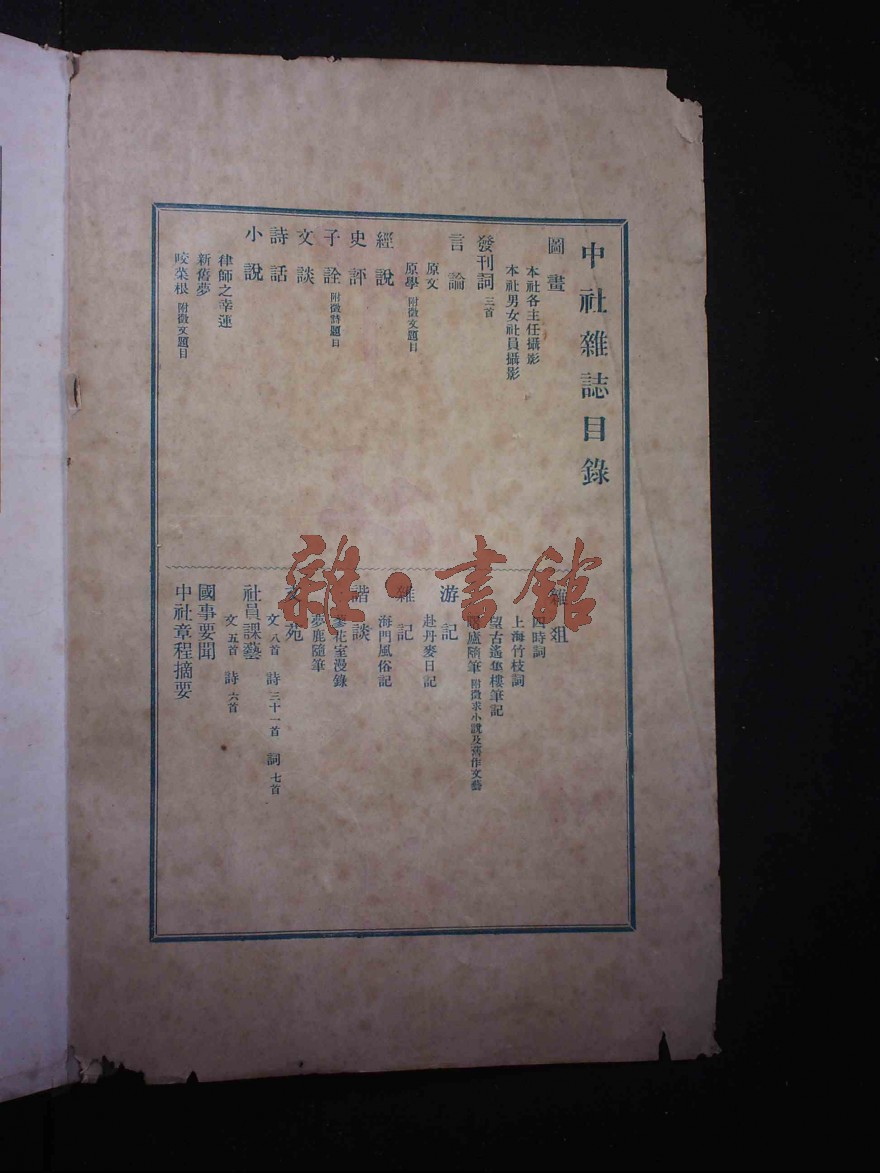 中社雜誌目錄
圖畫
本社各主任攝影
本社男女社員攝影
發刊詞 三首
言論
原文
原學 附徵文題目
經說
史評
子詮 附徵詩題目
文談
詩話
小說
律師之幸運
新舊夢
咬菜根 附徵文題目
雜俎
四時詞
上海竹枝詞
望古遙集樓筆記
廬隨筆 附徵求小說及舊作文藝
游記
赴丹麥日記
雜記
海門風俗記
諧談
花室漫錄
夢鹿隨筆
文苑
文 八首 詩 三十一首 詞 七首
社員課藝
文 五首 詩 六首
國事要聞
中社章程摘要
雜·書館